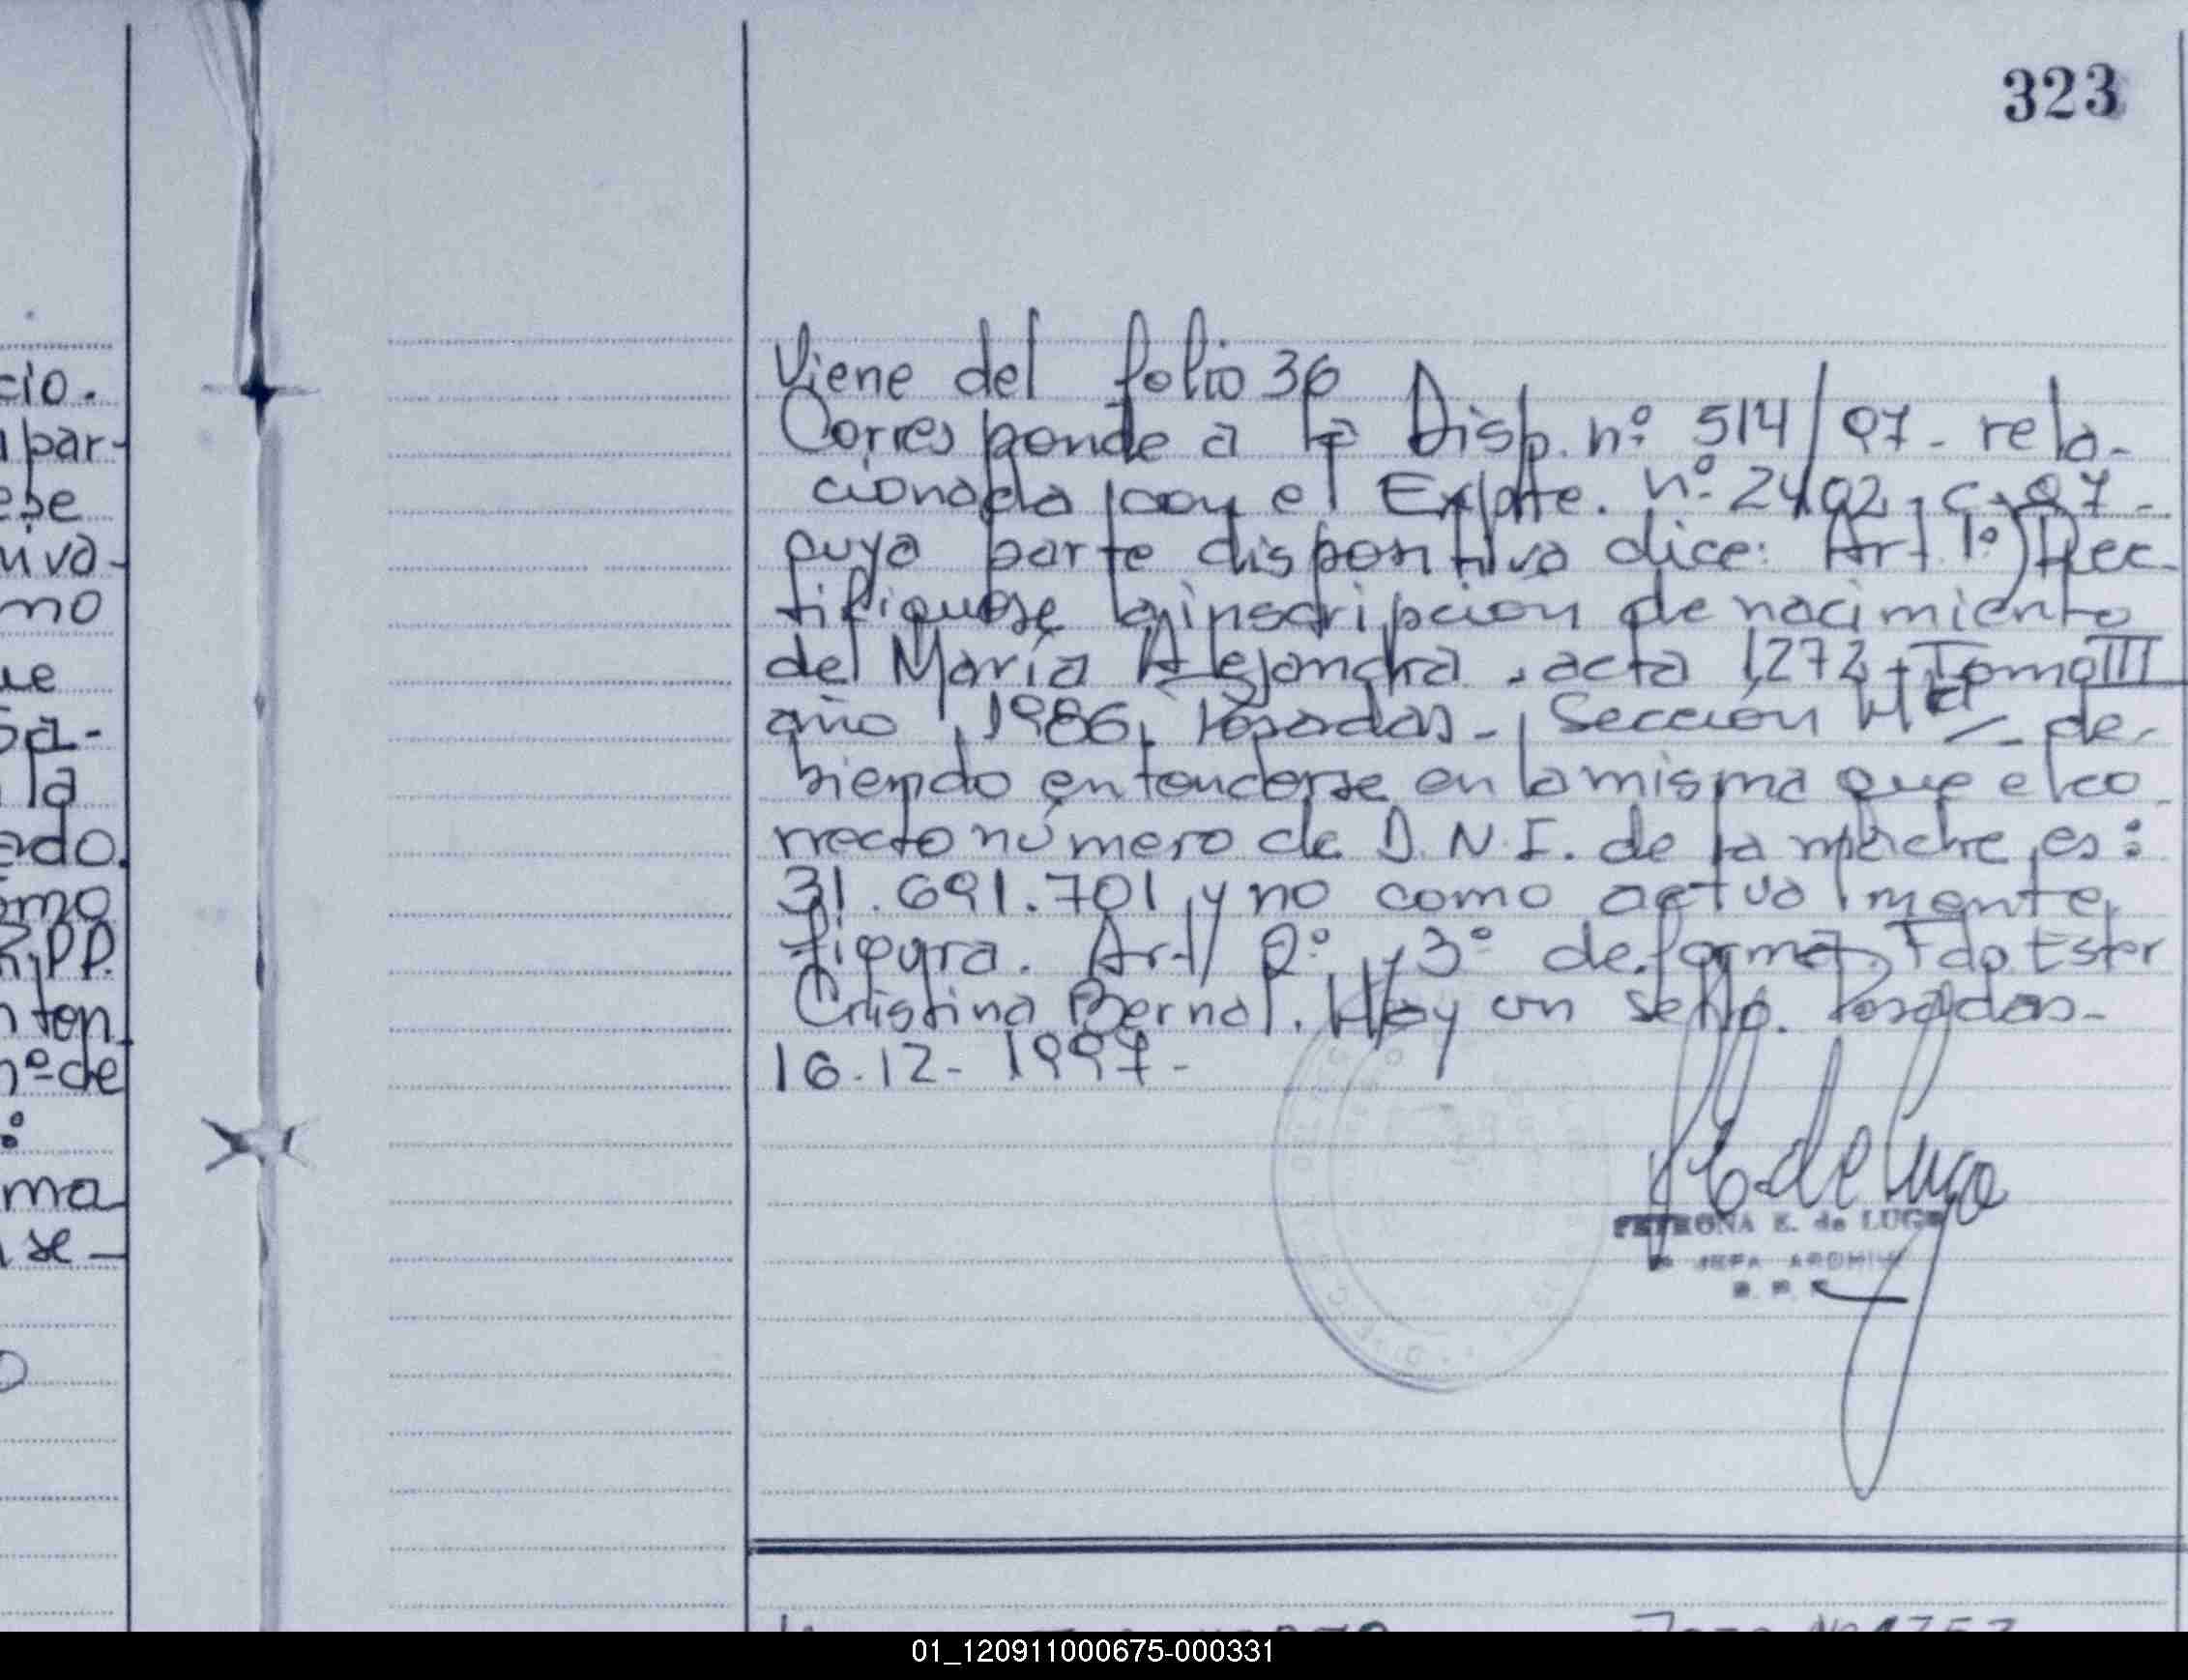 323
cio.
par-
ese
uiva-
mo
ue
Sa-
la
ado.
omo
R.PP.
nton
nº de
:
ma
se-
Viene del folio 36
Corresponde a la Disp. nº 514/97- rela-
cionada con el Expte. nº 2402-C-97-
cuya parte dispositiva dice: Art 1º) Rec-
tifiquese la inscripcion de nacimiento
del María Alejandra, acta 1272-Tomo III
año 1986, Posadas- Sección - de-
biendo entenderse en la misma que el co-
rrecto número de D.N.I. de la madre es:
31.691.701 y no como actualmente
figura. Art/ 2º y 3º de forma. Fdo Ester
Cristina Bernal. Hay un sello. Posadas-
16.12-1997-
PETRONA E. de LUGO
JEFA
01_120911000675-000331